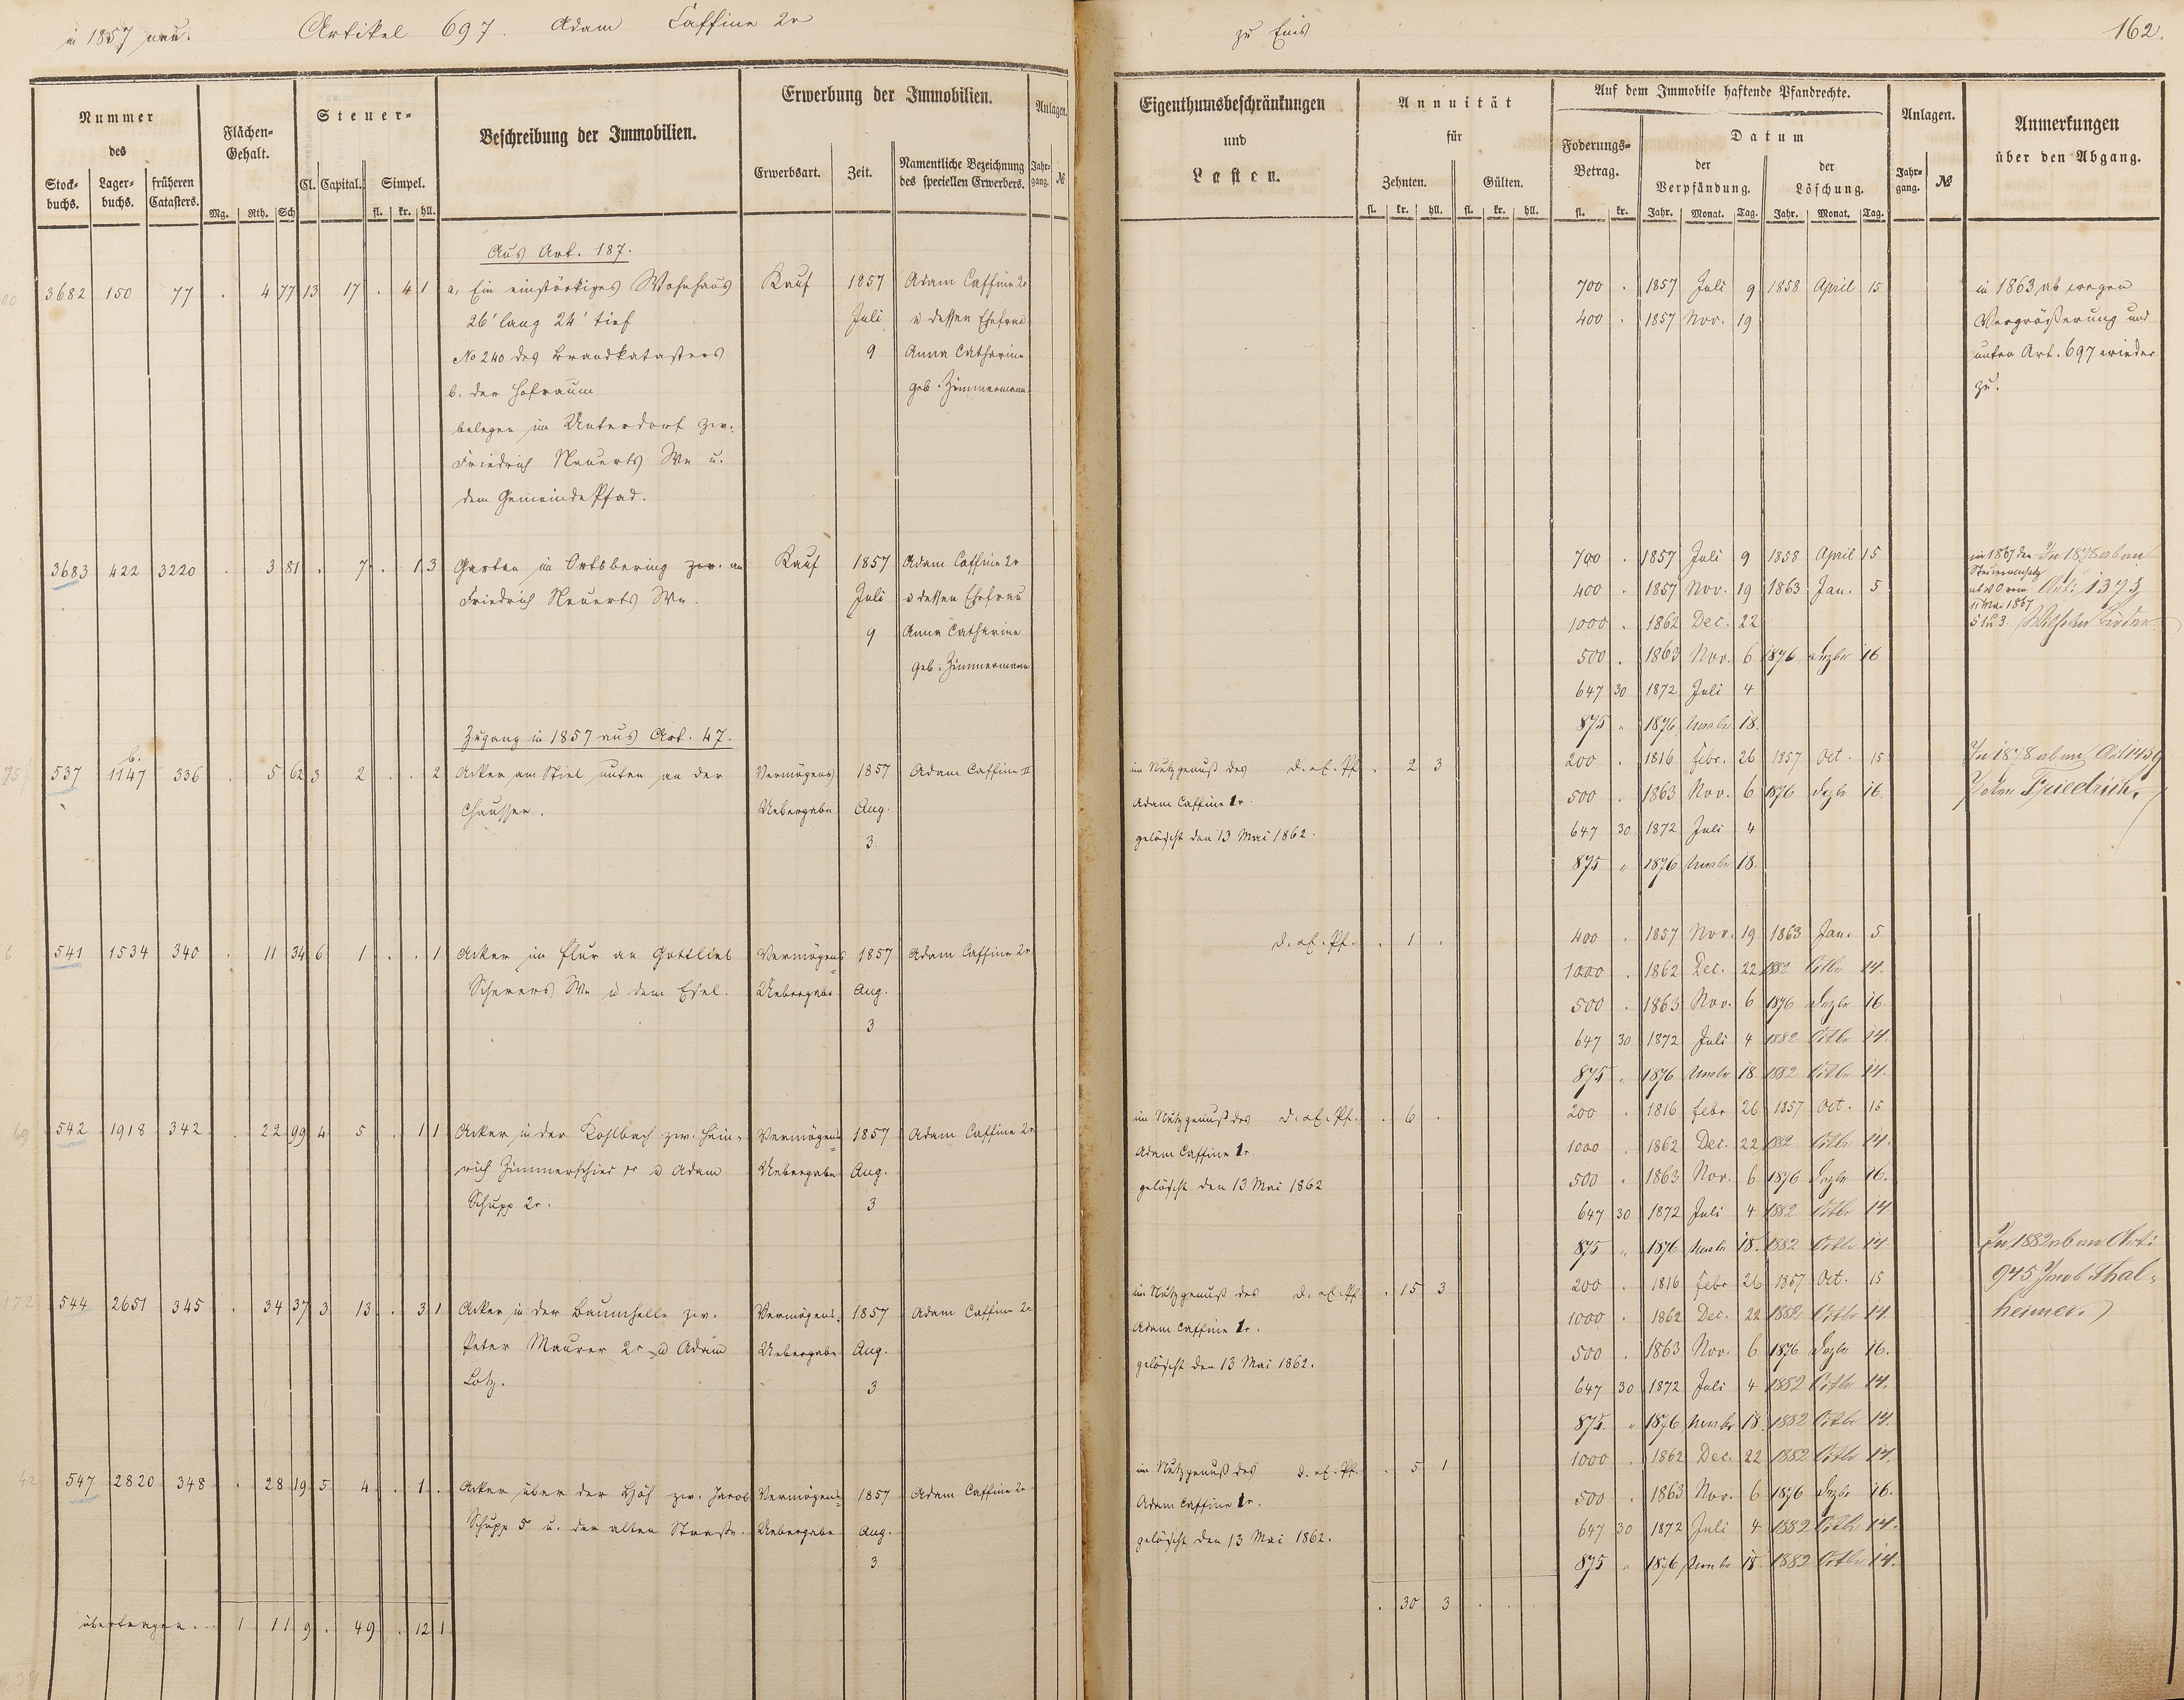 in 1857 neu. Artikel 697. Adam Caffine 2r
Nummer des
Stockbuchs. Lagerbuchs. früheren Catasters.
Flächen-Gehalt.
Mg. Rth. Sch
Steuer-
Cl. Capital. Simpel.
fl. kr. hll.
Beschreibung der Immobilien.
Erwerbung der Immobilien.
Erwerbsart. Zeit. Namentliche Bezeichnung des speciellen Erwerbers.
Anlagen.
Jahrgang. №
Aus Art. 187.
3682 150 77 . 4 77 13 17 . 4 1 a, Ein einstöckiges Wohnhaus Kauf 1857 Adam Caffine 2r
26' lang 24' tief Juli u dessen Ehefrau
No 240 des Brandkatasters 9 Anna Catharine
b. der Hofraum geb. Zimmermann
belegen im Unterdorf zw.
Friedrich Neuerts We u.
dem Gemeinde Pfad.
3683 422 3220 . 3 81 . 7 . 1 3 Garten im Ortsbering zw. an Kauf 1857 Adam Caffine 2r
Friedrich Neuerts We. Juli u dessen Ehefrau
9 Anna Catharine
geb. Zimmermann
Zugang in 1857 aus Art. 47.
b.
537 1147 336 . 5 62 3 2 . . 2 Acker am Stiel unten an der Vermögens 1857 Adam Caffine II
Chaussee. Uebergabe Aug.
3.
541 1534 340 . 11 34 6 1 . . 1 Acker im Flur an Gottlieb Vermögens 1857 Adam Caffine 2r
Scherers We u dem Esel. Uebergabe Aug.
3
542 1918 342 . 22 99 4 5 . 1 1 Acker in der Kohlbach zw. Hein- Vermögens 1857 Adam Caffine 2r
rich Zimmerschied u Adam Uebergabe Aug.
Schupp 2r. 3
544 2651 345 . 34 37 3 13 . 3 1 Acker in der Baumhelle zw. Vermögens 1857 Adam Caffine 2r
Peter Maurer 2r u Adam Uebergabe Aug.
Lotz. 3
547 2820 348 . 28 19 5 4 . 1 . Acker über der Höh zw. Jacob Vermögens 1857 Adam Caffine 2r
Schupp 5 u. der alten Straße. Uebergabe Aug.
3
übertragen... 1 11 9 . 49 . 12 1
zu Ems 162.
Eigenthumsbeschränkungen und Lasten.
Annuität für
Zehnten. Gülten.
fl. kr. hll. fl. kr. hll.
Auf dem Immobile haftende Pfandrechte.
Foderungs-Betrag.
fl. kr.
Datum
der Verpfändung. der Löschung.
Jahr. Monat. Tag. Jahr. Monat. Tag.
Anlagen.
Jahrgang. №
Anmerkungen über den Abgang.
700 . 1857 Juli 9 1858 April 15 in 1863 ab wegen
400 . 1857 Nov. 19 Vergrößerung und
unter Art. 697 wieder
zu.
700 . 1857 Juli 9 1858 April 15 in 1867 den In 1878 ab an
400 . 1857 Nov. 19 1863 Jan. 5 Art: 1373
1000 . 1862 Dec. 22 Wilhelm
500 . 1863 Nov. 6 1876 Dezbr 16
647 30 1872 Juli 4
875 " 1876 Novbr 18.
im Nutzgenuß des D. ev. Pf. . 2 3 200 . 1816 Febr. 26 1857 Oct. 15 In 1878 ab an Art 1459
Adam Caffine 1r. 500 . 1863 Nov. 6 1876 Dezbr 16. Friedrich.
gelöscht den 13 Mai 1862. 647 30 1872 Juli 4
875 " 1876 Novbr 18.
D. ev. Pf. . 1 . 400 . 1857 Nov. 19 1863 Jan. 5
1000 . 1862 Dec. 22 1882 Octbr 14.
500 . 1863 Nov. 6 1876 Dezbr 16.
647 30 1872 Juli 4 1882 Octbr 14.
875 . 1876 Novbr 18. 1882 Octbr 14.
im Nutzgenuß des D. ev. Pf. . 6 . 200 . 1816 Febr 26 1857 Oct. 15
Adam Caffine 1r. 1000 . 1862 Dec. 22 1882 Octbr 14.
gelöscht den 13 Mai 1862 500 . 1863 Nov. 6 1876 Dezbr 16.
647 30 1872 Juli 4 1882 Octbr 14.
875 " 1876 Novbr 18. 1882 Octbr 14. In 1882 ab an Art:
im Nutzgenuß des D. ev. Pf. . 15 3 200 . 1816 Febr 26 1857 Oct. 15 945 Jacob Thal-
Adam Caffine 1r. 1000 . 1862 Dec. 22 1882 Octbr 14. heimer.
gelöscht den 13 Mai 1862. 500 . 1863 Nov. 6 1876 Dezbr 16.
647 30 1872 Juli 4 1882 Octbr 14.
875. " 1876 Novbr 18. 1882 Octbr 14.
im Nutzgenuß des D. ev. Pf. . 5 1 1000 . 1862 Dec. 22 1882 Octbr 14.
Adam Caffine 1r. 500 . 1863 Nov. 6 1876 Dezbr 16.
gelöscht den 13 Mai 1862. 647 30 1872 Juli 4 1882 Octbr 14.
875 " 1876 Novbr 18. 1882 Octbr 14.
. 30 3 . .